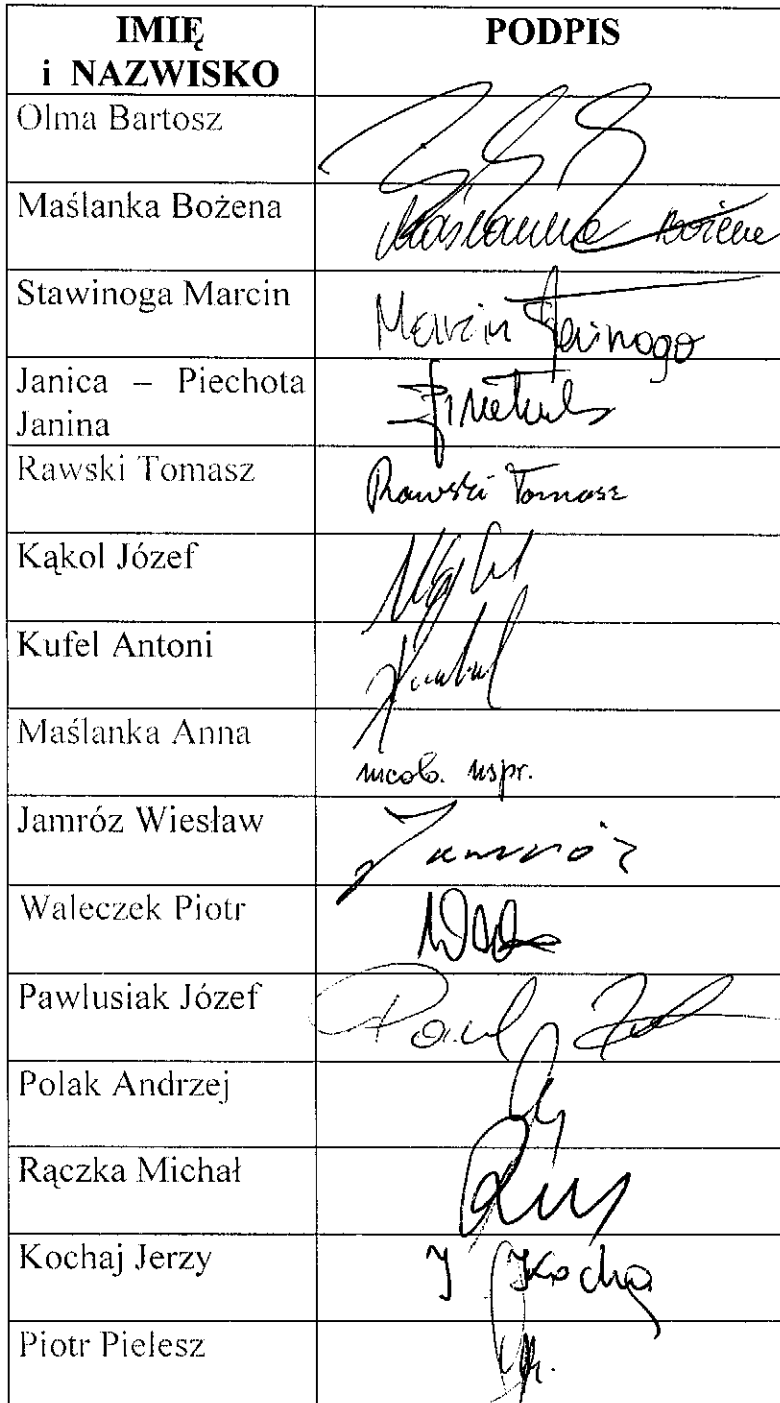 IMIĘ
i NAZWISKO
PODPIS
Olma Bartosz
Maślanka Bożena
Maślanka Bożena
Stawinoga Marcin
Marcin Stawinoga
Janica – Piechota
Janina
Rawski Tomasz
Rawski Tomasz
Kąkol Józef
Kufel Antoni
Maślanka Anna
nieob. uspr.
Jamróz Wiesław
Jamróz
Waleczek Piotr
Pawlusiak Józef
Polak Andrzej
Rączka Michał
Kochaj Jerzy
J Kochaj
Piotr Pielesz